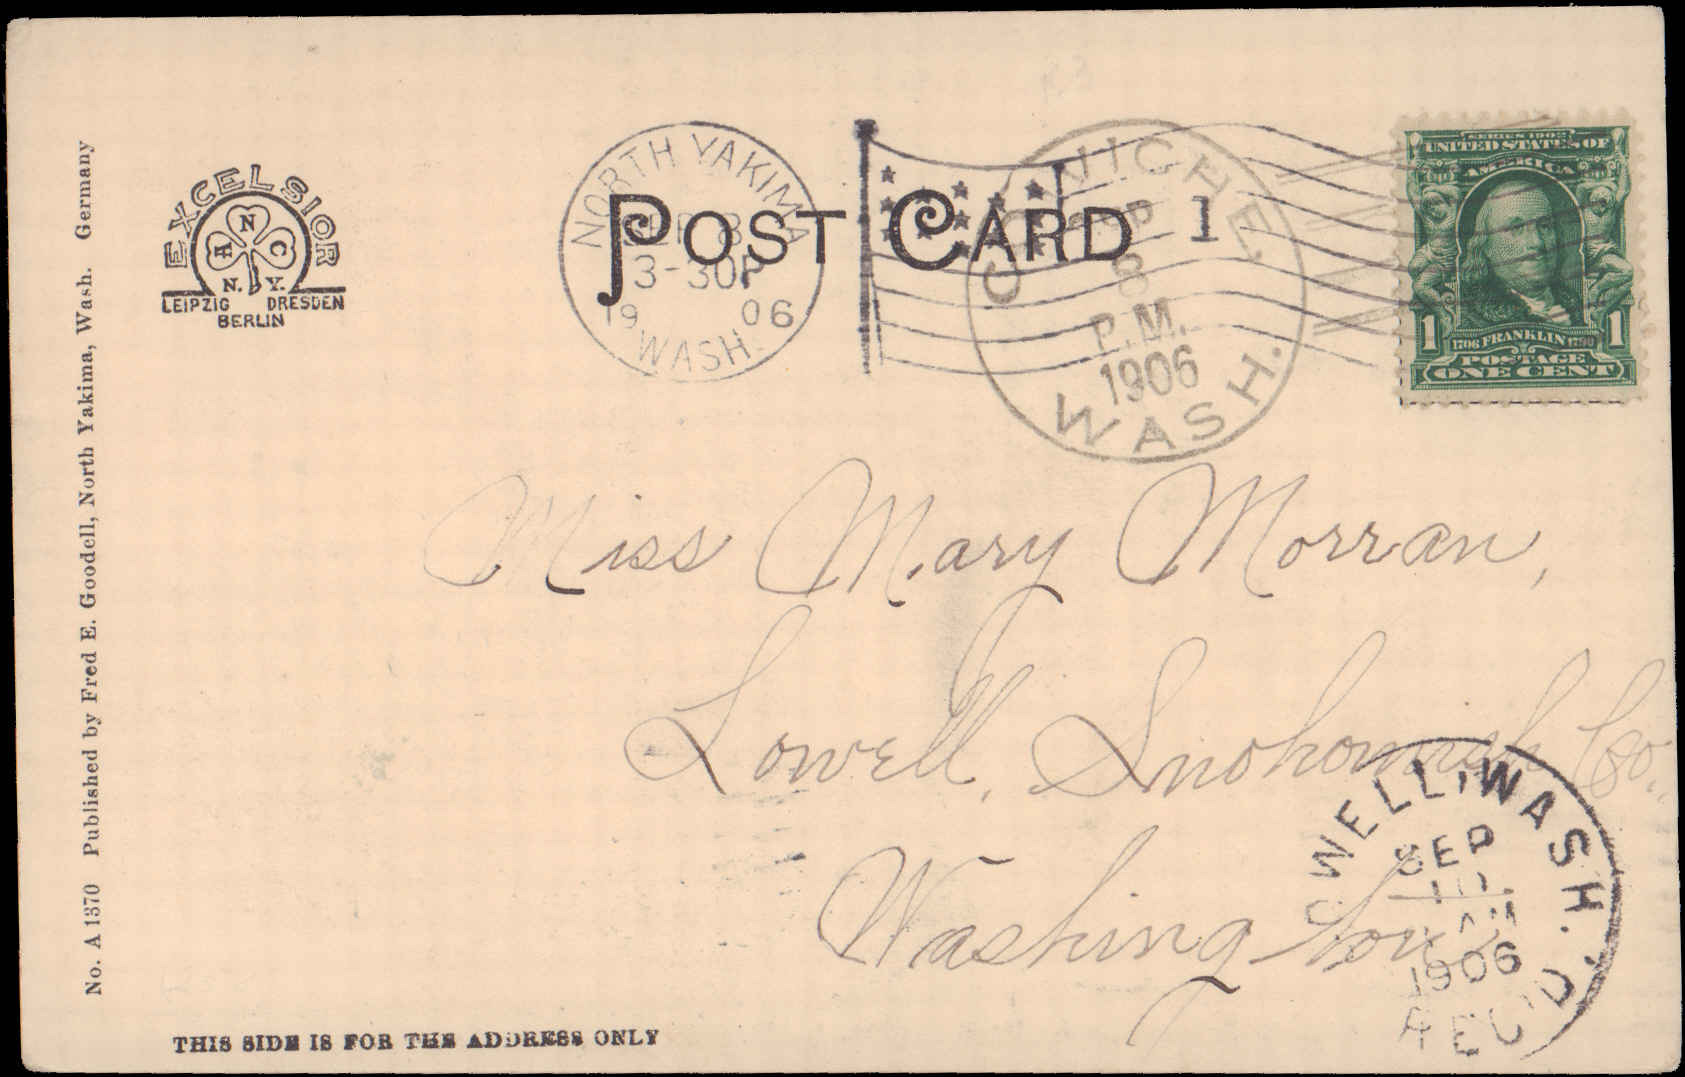 No. A 1370 Published by Fred E. Goodell, North Yakima, Wash. Germany
EXCELSIOR
A N C
N. Y.
LEIPZIG DRESDEN
BERLIN
POST CARD
NORTH YAKIMA
SEP 8
3-30P
1906
WASH.
1
COWICHE,
SEP
8
P.M.
1906
WASH.
SERIES 1902
UNITED STATES OF
AMERICA
1 1706 FRANKLIN 1790 1
POSTAGE
ONE CENT
Miss Mary Morran,
Lowell, Snohomish Co.,
Washington
LOWELL, WASH.
SEP
10
AM
1906
REC'D
THIS SIDE IS FOR THE ADDRESS ONLY